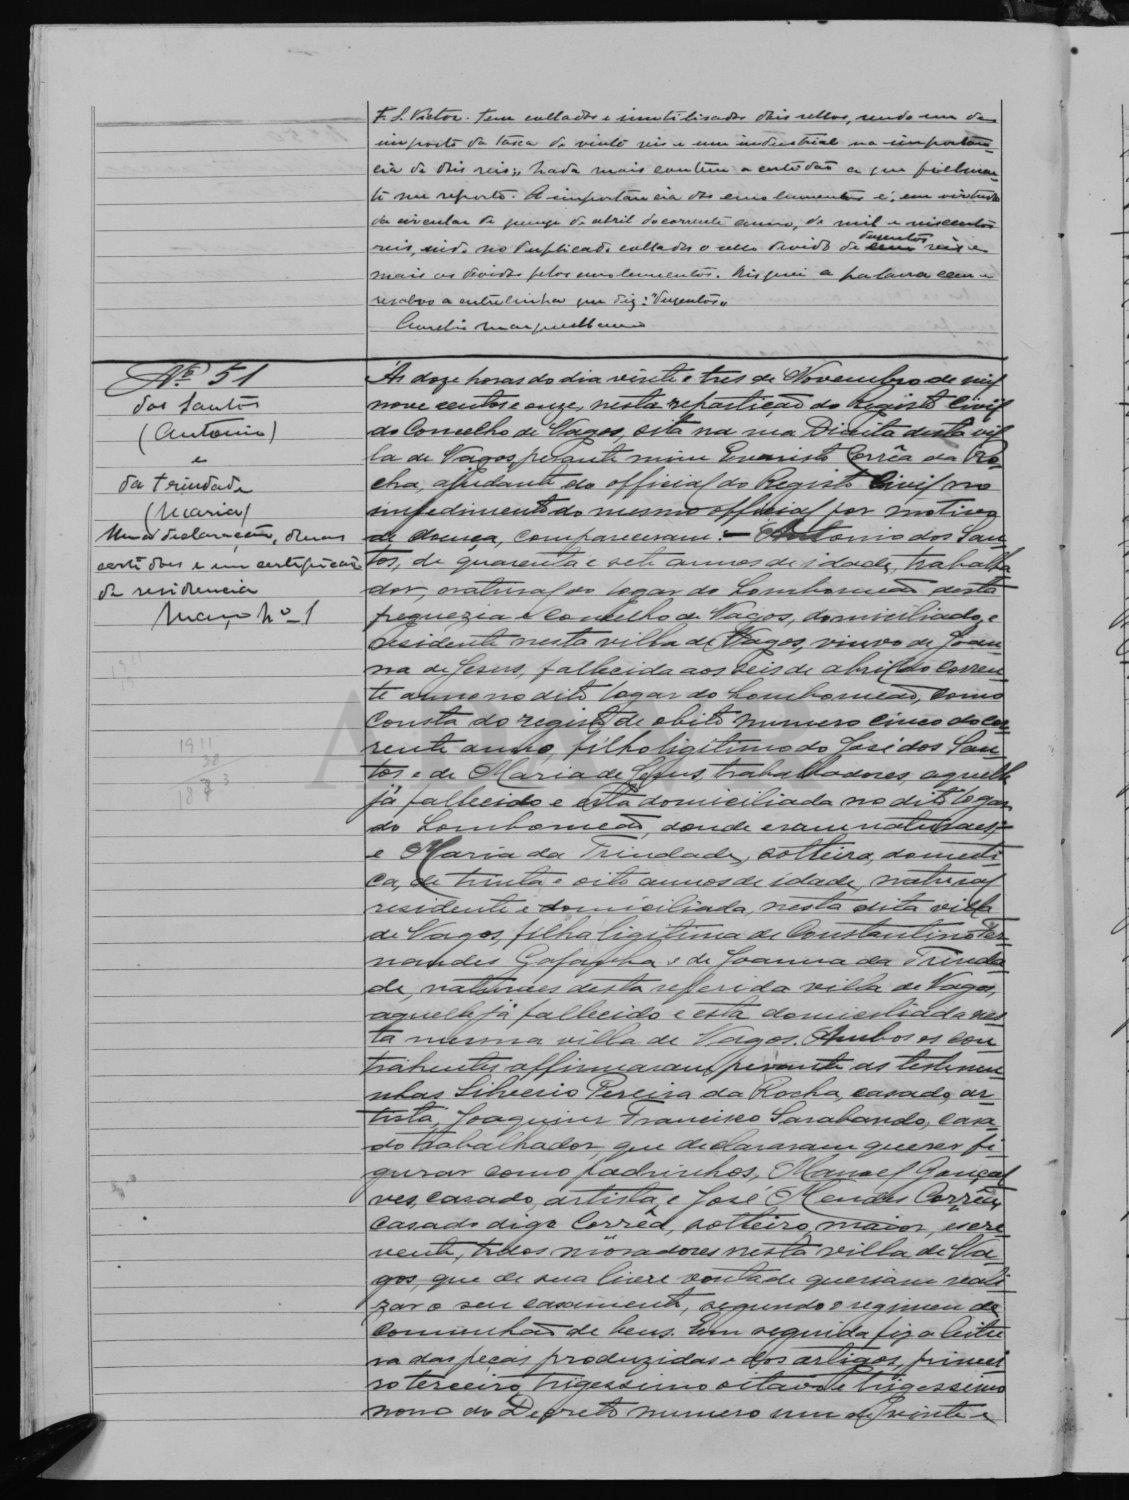 F. S. Victor. Tem collados e inutilisados dois sellos, sendo um de
imposto da taxa de vinte reis e um industrial na importan-
cia de dois reis; Nada mais contem a certidão a que fielmen-
te me reporto. A importancia dos emolumentos é, em virtude
da circular de quinze de abril do corrente anno, de mil e
reis, no duplicado collados o sello devido de cem duzentos reis e
mais os devidos pelos emolumentos. Risquei a palavra cem e
resalvo a entrelinha que diz: "duzentos"
Aurelio Marques
Nº 51
dos Santos
(Antonio)
e
da Trindade
(Maria)
Uma declaração, duas
certidões e um certificado
de residencia
Maço Nº 1
1911
38
1873
Ás doze horas do dia vinte e tres de Novembro de mil
nove centos e onze, nesta repartição do Registo Civil
do Concelho de Vagos, sita na rua Direita desta vil-
la de Vagos, perante mim Evaristo Corrêa da Ro-
cha, ajudante do official do Registo Civil no
impedimento do mesmo official por motivo
de doença, compareceram: — Antonio dos San-
tos, de quarenta e sete annos de idade, trabalha
dor, natural do logar do Lombomeão desta
freguezia e concelho de Vagos, domiciliado e
residente nesta villa de Vagos, viuvo de Joan-
na de Jesus, fallecida aos seis de abril do corren-
te anno no dito logar do Lombomeão, como
consta do registo de obito numero cinco do cor-
rente anno, filho ligitimo do José dos San-
tos e de Maria de Jesus, trabalhadores, aquelle
já fallecido e esta domiciliada no dito logar
do Lombomeão, donde eram naturaes;-
e Maria da Trindade, solteira, domesti-
ca, de trinta e oito annos de idade, natural
residente e domiciliada, nesta dita villa
de Vagos, filha ligitima de Constantino Fer-
nandes Gafanha e de Joanna da Trinda-
de, naturaes desta referida villa de Vagos,
aquelle já fallecido e esta domiciliada nes-
ta mesma villa de Vagos. Ambos os con-
trahentes affirmaram, perante as testemu-
nhas Silverio Pereira da Rocha, casado, ar-
tista, Joaquim Francisco Sarabando, casa-
do trabalhador, que declararam querer fi-
gurar como padrinhos, Manoel Gonçal
ves, casado, artista e José Mendes Corrêa,
casado digo Corrêa, solteiro, maior, escre-
vente, todos moradores nesta villa de Va-
gos, que de sua livre vontade queriam reali-
zar o seu casamento, segundo o regimen de
communhão de bens. Em seguida fiz a leitu-
ra das peças produzidas e dos artigos, primei
ro terceiro, trigessimo oitavo e trigessimo
nono do Decreto numero um de vinte e